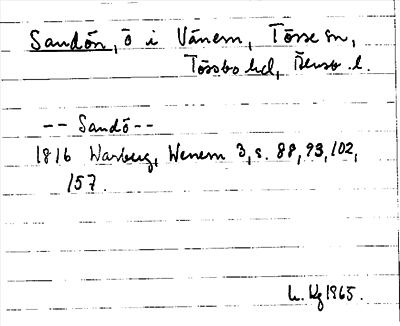 Sandön, ö i Vänern, Tösse sn,
Tössbo hd, Älvsb. l.
-- Sandö --
1816 Warberg, Wenern 3, s. 88, 93, 102,
157.
1965.